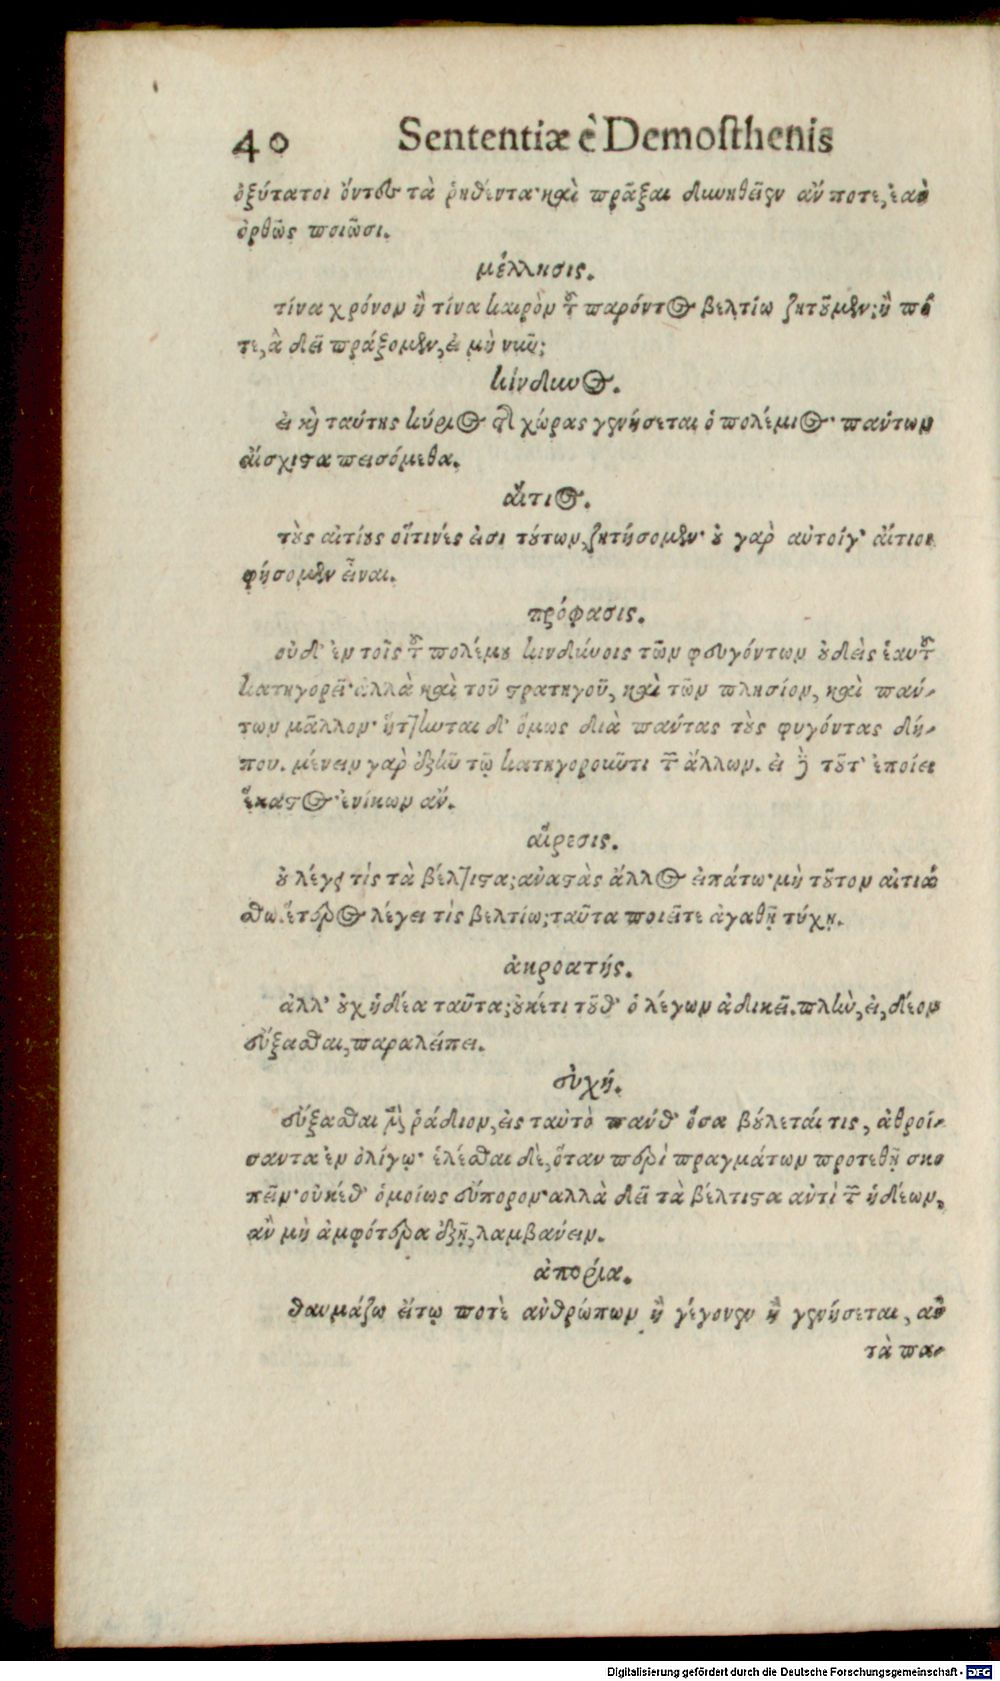 40 Sententiæ è Demosthenis
ὀξύτατοι ὄντες τὰ ῥηθέντα· καὶ πρᾶξαι δυνηθεῖεν ἄν ποτε, ἐὰν
ὀρθῶς ποιῶσι.
μέλλησις.
τίνα χρόνον ἢ τίνα καιρὸν τοῦ παρόντος βελτίω ζητοῦμεν; ἢ πό
τε, ἃ δεῖ πράξομεν, εἰ μὴ νῦν;
κίνδυνος.
εἰ καὶ ταύτης κύριος τῆς χώρας γενήσεται ὁ πολέμιος· πάντων
αἴσχιστα πεισόμεθα.
αἴτιος.
τοὺς αἰτίους οἵτινές εἰσι τούτων, ζητήσομεν· οὐ γὰρ αὐτοίγ' αἴτιοι
φήσομεν εἶναι.
πρόφασις.
οὐδ' ἐν τοῖς τοῦ πολέμου κινδύνοις τῶν φευγόντων οὐδεὶς ἑαυτοῦ
κατηγορεῖ· ἀλλὰ καὶ τοῦ στρατηγοῦ, καὶ τῶν πλησίον, καὶ πάν-
των μᾶλλον· ἥττηνται δ' ὅμως διὰ πάντας τοὺς φυγόντας δή-
που. μένειν γὰρ ἐξῆν τῷ κατηγοροῦντι τῶν ἄλλων. εἰ δὲ τοῦτ' ἐποίει
ἕκαστος· ἐνίκων ἄν.
αἵρεσις.
οὐ λέγει τὶς τὰ βέλτιστα; ἀναστὰς ἄλλος εἰπάτω· μὴ τοῦτον αἰτιά
σθω. ἕτερος λέγει τὶς βελτίω; ταῦτα ποιεῖτε ἀγαθῇ τύχῃ.
ἀκροατής.
ἀλλ' οὐχ ἡδέα ταῦτα; οὐκέτι τοῦθ' ὁ λέγων ἀδικεῖ. πλὴν, εἰ, δέον
εὔξασθαι, παραλείπει.
εὐχή.
εὔξασθαι μὲν ῥάδιον, εἰς ταὐτὸ πάνθ' ὅσα βούλεταί τις, ἀθροί-
σαντα ἐν ὀλίγῳ· ἑλέσθαι δὲ, ὅταν περὶ πραγμάτων προτεθῇ σκο
πεῖν· οὐκέθ' ὁμοίως εὔπορον· ἀλλὰ δεῖ τὰ βέλτιστα ἀντὶ τῶν ἡδέων,
ἂν μὴ ἀμφότερα ἐξῇ, λαμβάνειν.
ἀπορία.
θαυμάζω εἴτῳ ποτὲ ἀνθρώπων ἢ γέγονεν ἢ γενήσεται, ἂν
τὰ πα-
Digitalisierung gefördert durch die Deutsche Forschungsgemeinschaft - DFG